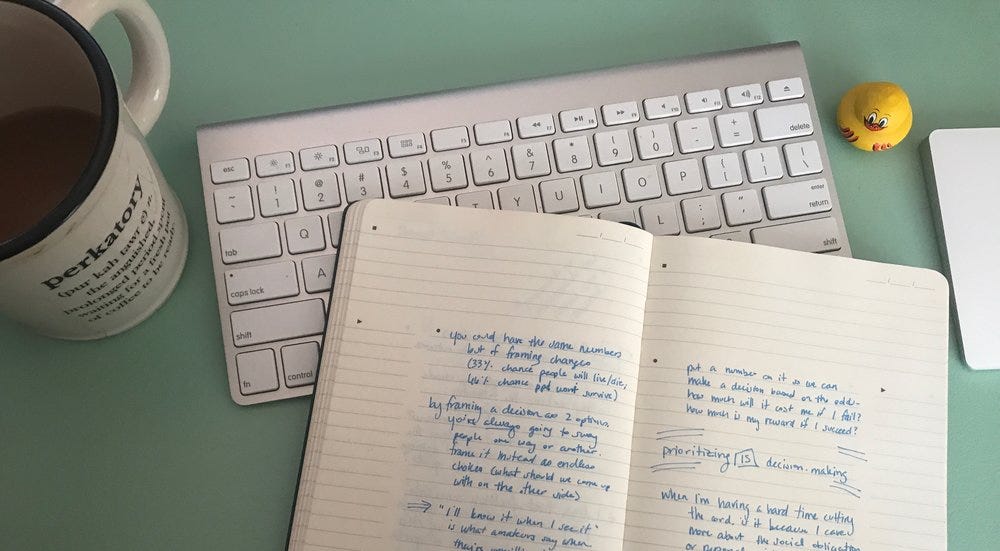 perkatory
(pur kah tawr e) n.
the anguished,
prolonged period spent
waiting for a fresh pot
of coffee to be ready
esc F1 F2 F3 F4 F5 F6 F7 F8 F9 F10 F11 F12
~ ` ! 1 @ 2 # 3 $ 4 % 5 ^ 6 & 7 * 8 ( 9 ) 0 _ - + = delete
tab Q T Y U I O P { [ } ] | \
caps lock A L : ; " ' enter return
shift shift
fn control
• you could have the same numbers
but if framing changes
(33% chance people will live/die,
66% chance ppl won't survive)
by framing a decision as 2 options,
you're always going to sway
people one way or another.
frame it instead as endless
choices (what should we come up
with on the other side)
⇒ "I'll know it when I see it"
is what amateurs say when
they're
put a number on it so we can
make a decision based on the odds-
how much will it cost me if I fail?
how much is my reward if I succeed?
prioritizing IS decision-making
when I'm having a hard time cutting
the cord, is it because I care
more about the social obligation
or